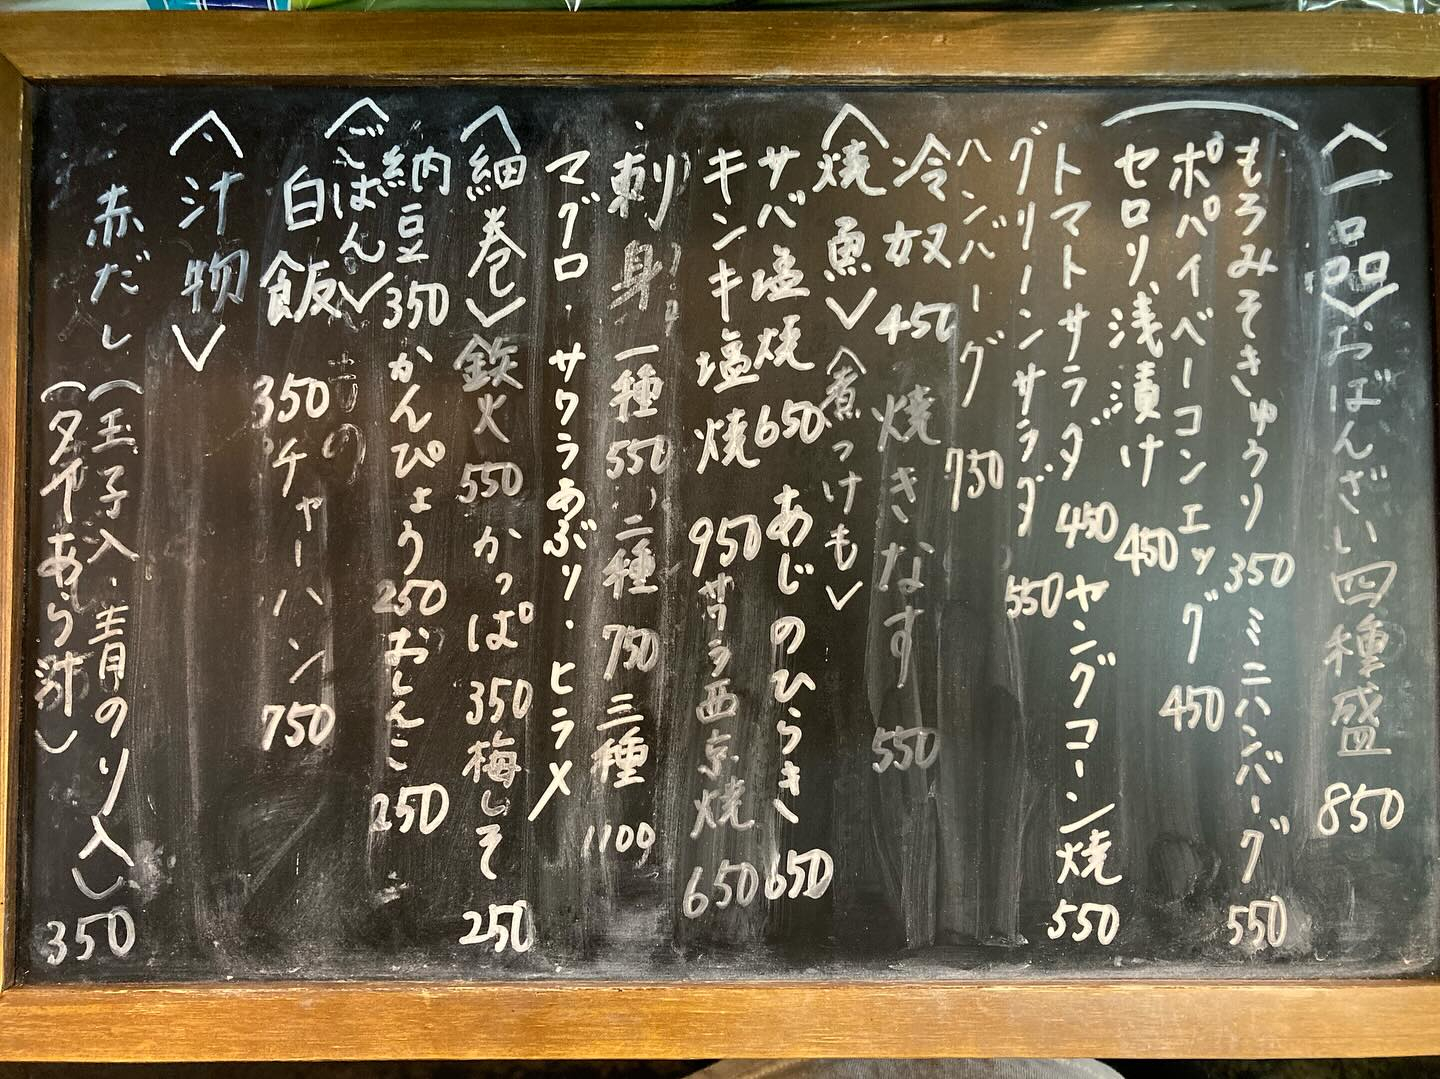 〈一品〉おばんざい四種盛 850
もろみそきゅうり 350 ミニハンバーグ 550
ポパイベーコンエッグ 450
セロリ浅漬け 450
トマトサラダ 450 ヤングコーン焼 550
グリーンサラダ 550
ハンバーグ 750
冷奴 450 焼きなす 550
〈焼魚〉〈煮つけも〉
サバ塩焼 650 あじのひらき 650
キンキ塩焼 950 サワラ西京焼 650
刺身 一種 550 二種 750 三種 1100
マグロ・サワラあぶり・ヒラメ
〈細巻〉鉄火 550 かっぱ 350 梅しそ 250
納豆 350 かんぴょう 250 おしんこ 250
〈ごはん〉
白飯 350 チャーハン 750
〈汁物〉
赤だし (玉子入・青のり入) 350
(タイあら汁)